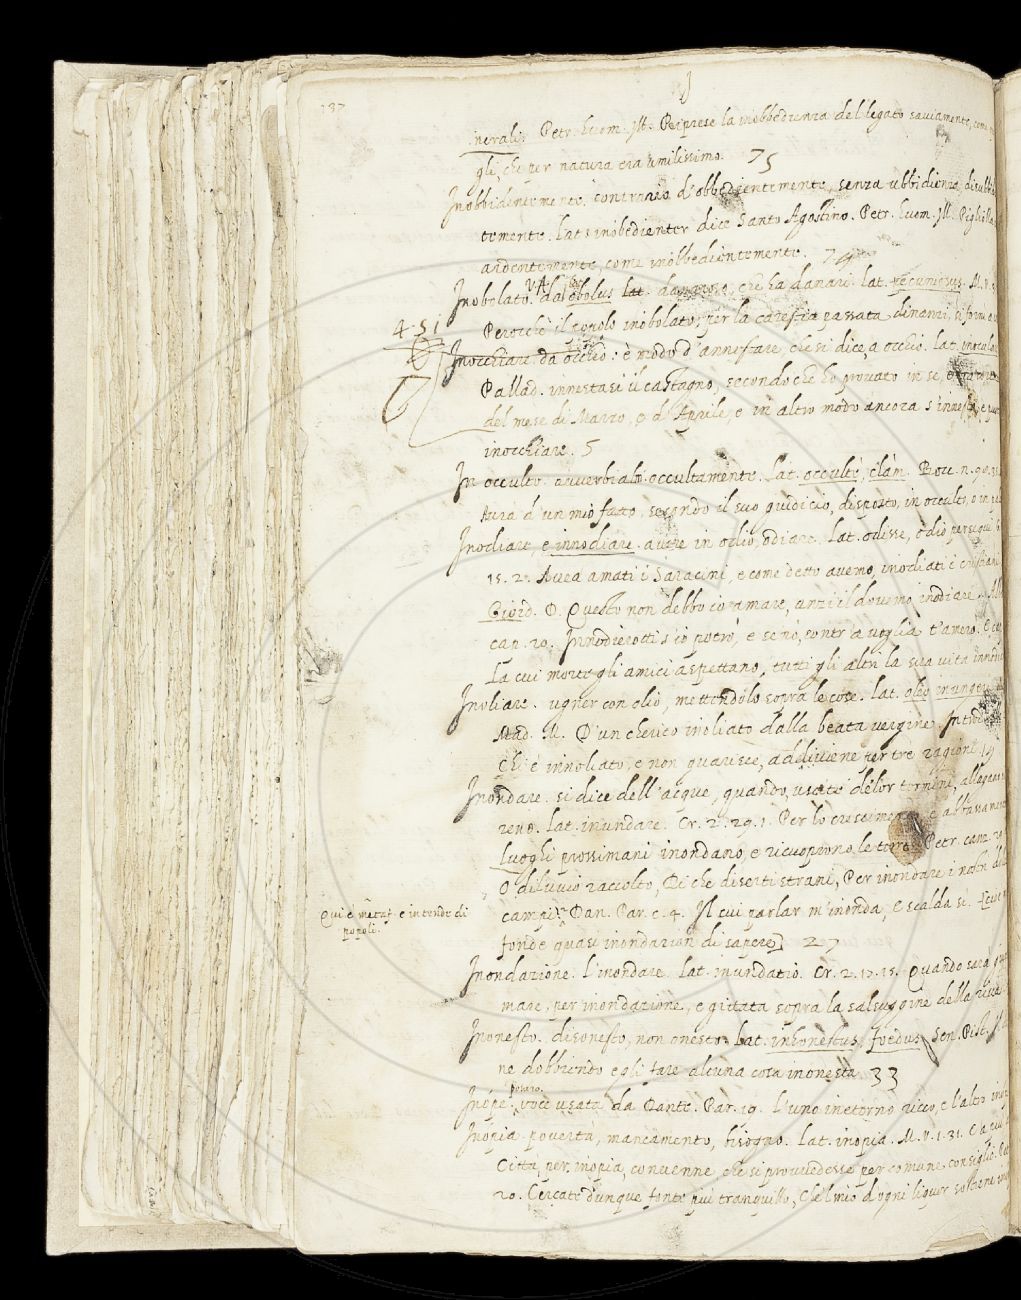 137
I
nerali. Petr. huom. Ill. Ripirese la inobbedienza del legato saviamente, come
gli, che per natura era umilissimo. 75
Inobbidientemente. contrario d'obbedientemente, senza ubbidienza, disubbi
temente. Lat. inobedienter dice Santo Agostino. Petr. huom. Ill. Pigliolla
ardentemente, come inobbedientemente.
Inobolato. da obolus lat. danaroso, che ha danari. lat. pecuniosus. M. V.
Perocchè il popolo inobolato, per la carestia passata dinanzi, si forni
4.51
Inocchiare da occhio: è modo d'annestare, che si dice, a occhio. lat. inoculare
Pallad. innestasi il castagno, secondo che ho provato in se,
del mese di Marzo, e d'Aprile, e in altro modo ancora s'innesta, e
inocchiare. 5
In occulto. avverbial. occultamente. Lat. occultè, clàm. Bocc. n. 98.
tura d'un mio fatto, secondo il suo giudicio, disposto, in occulto, o in
Inodiare, e innodiare. avere in odio, odiare. Lat. odisse, odio persequi.
15. 2. Avea amati i Saracini, e come detto avemo, inodiati i cristiani
Giord. D. Questo non debbo io amare, anzi il dovemo inodiare.
cap. 20. Innodierotti s'io potrò, e se nò, contr'a voglia t'amerò.
La cui morte gli amici aspettano, tutti gli altri la sua vita
Inoliare. ugner con olio, mettendolo sopra le cose. lat. oleo inungere
Mad. M. D'un cherico inoliato dalla beata vergine.
Chi è innoliato, e non guarisce, addiviene per tre ragioni 19
Inondare. si dice dell'acque, quando, uscite de'lor termini, allagano
reno. Lat. inundare. Cr. 2. 29. 1. Per lo crescimento, e abbassamento
luoghi prossimani inondano, e ricuoprono le terre. Petr. canz. 29
O diluvio raccolto, Di che diserti strani, Per inondare i nostri
Qui è metaf. e intende di
popoli.
campi. Dan. Par. c. 4. Il cui parlar m'inonda, E scalda sì.
fonde quasi inondazion di sapere] 27
Inondazione. l'inondare. Lat. inundatiò. Cr. 2. 13. 15. Quando sarà
mare, per inondazione, e gittata sopra la salsuggine della
Inonesto. disonesto, non onesto. Lat. inhonestus, foedus. Sen. Pist.
ne dobbiendo egli fare alcuna cosa inonesta. 33
Inope. voce usata da Dante. Par. 19. l'uno in eterno ricco, e l'altro inope
Inopia. povertà, mancamento, bisogno. Lat. inopia. M. V. 1. 31.
Città, per inopia, convenne, che si provvedesse per comune consiglio.
20. Cercate dunque fonte più tranquillo, Che'l mio d'ogni liquor sostiene